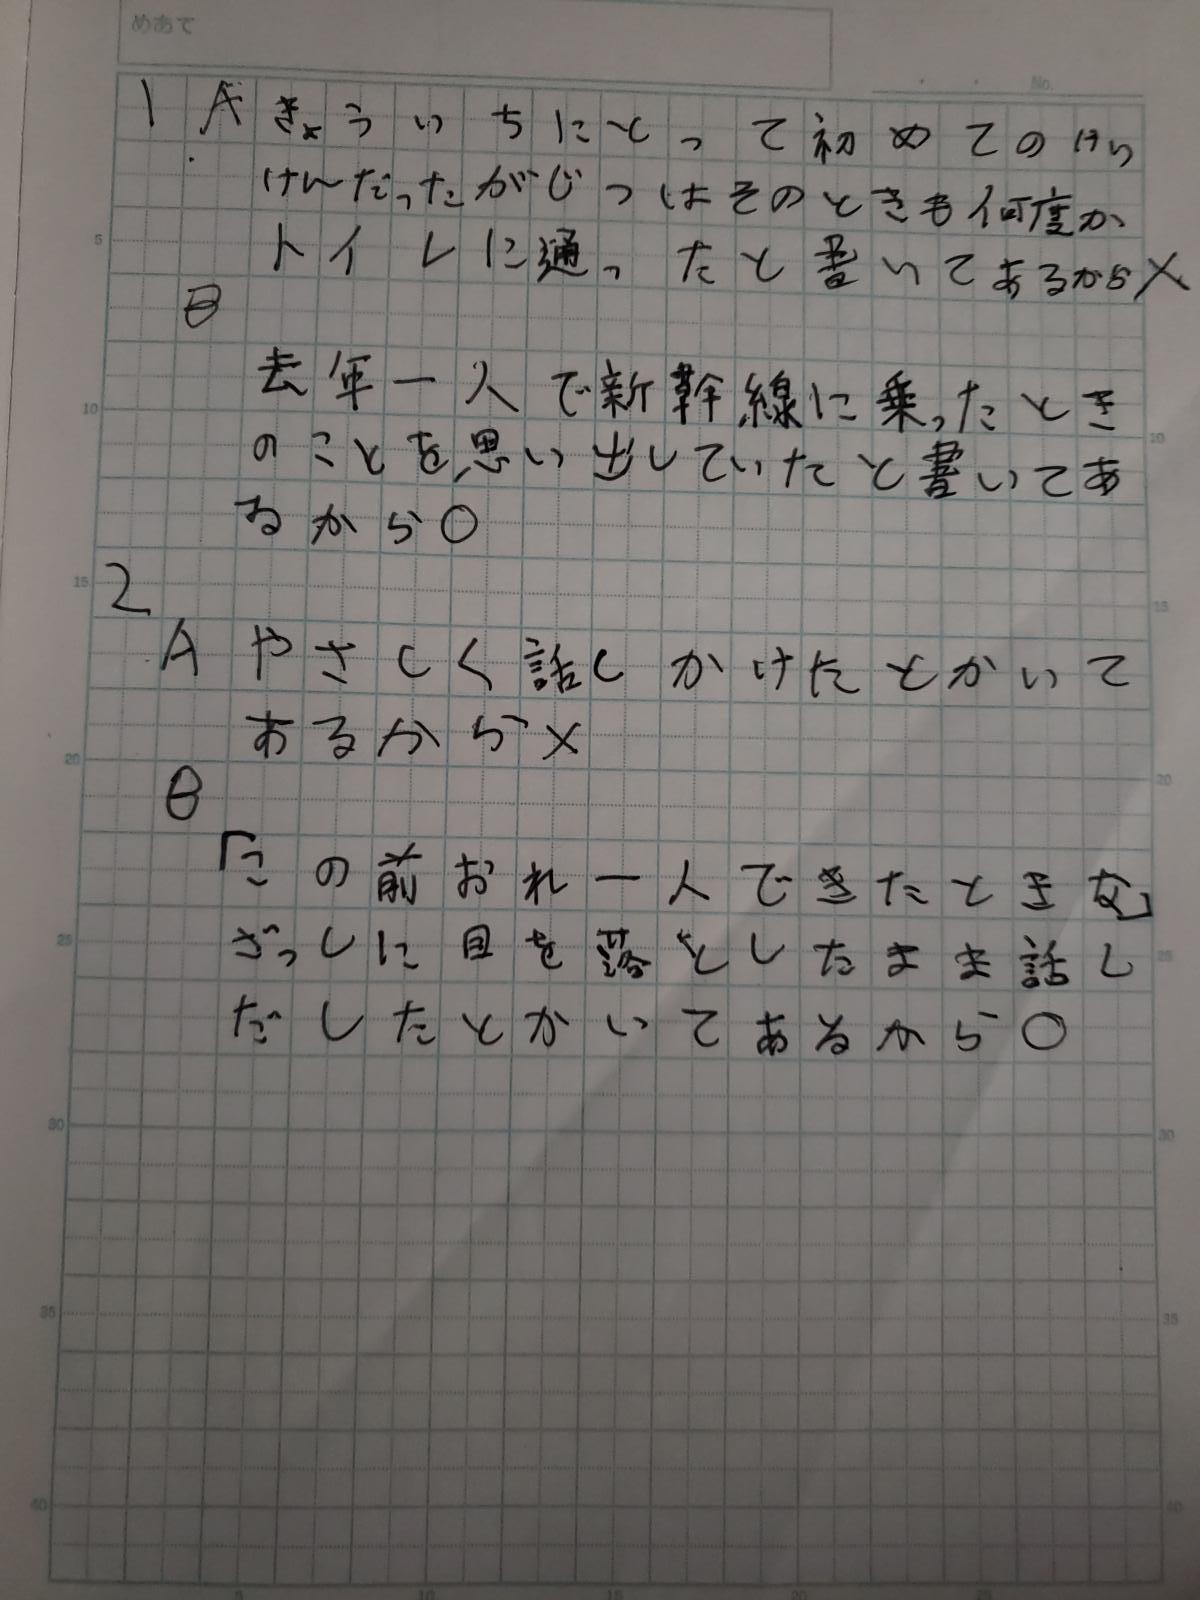 めあて
No.
1 A きょういちにとって初めてのけい
けんだったがじつはそのときも何度か
トイレに通ったと書いてあるから×
B
去年一人で新幹線に乗ったとき
のことを思い出していたと書いてあ
るから○
2
A やさしく話しかけたとかいて
あるから×
B
「この前おれ一人できたときな」
ざっしに目を落としたまま話し
だしたとかいてあるから○
5
10
15
20
25
30
35
40
10
15
20
25
30
35
40
5
10
15
20
25